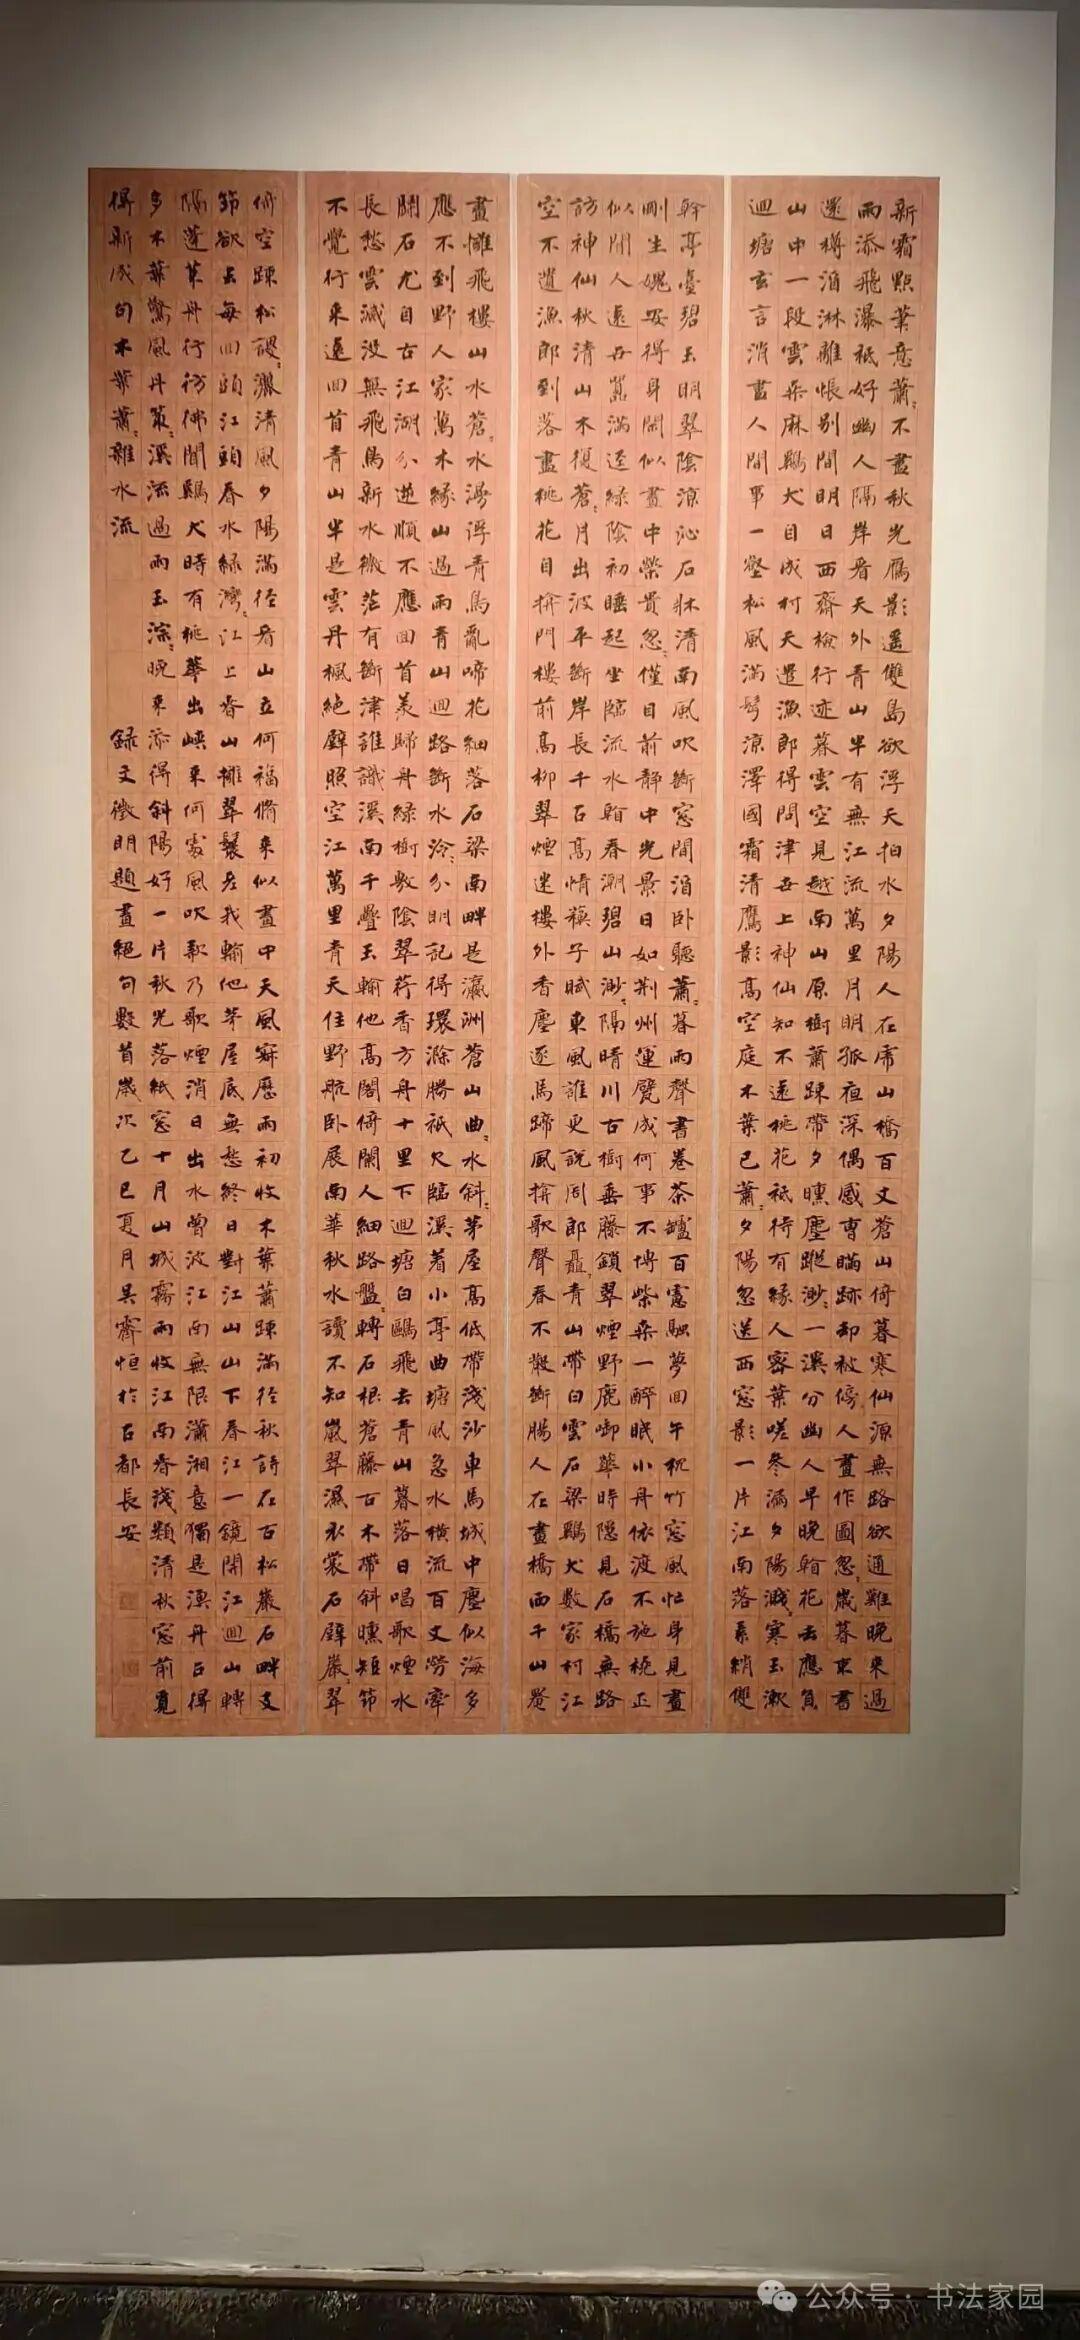 新霜點葉意蕭〻不盡秋光雁影遥雙島欲浮天拍水夕陽人在虎山橋百丈蒼山倚暮寒仙源無路欲通難晚來過
雨添飛瀑祇好幽人隔岸看天外青山半有無江流萬里月明孤夜深偶感曹瞞跡却被傍人畫作圖忽〻歲暮束書
還樽酒淋離悵別間明日西齋檢行迹暮雲空見越南山原樹蕭踈帶夕曛塵蹤渺〻一溪分幽人早晚看花去應負
山中一段雲桑麻鷄犬自成村天遣漁郎得問津世上神仙知不遠桃花祇待有緣人密葉嗟冬滿夕陽濺〻寒玉漱
迴塘玄言消盡人間事一壑松風滿鬢涼澤國霜清鷹影高空庭木葉已蕭〻夕陽忽送西窓影一片江南落素綃雙
幹亭臺碧玉明翠陰涼沁石牀清南風吹斷窓間酒卧聽蕭〻暮雨聲書卷茶罏百慮融夢回午枕竹窓風忙身見畫
剛生媿安得身閑似畫中榮貴忽〻僅目前静中光景日如荆州運甓成何事不博柴桑一醉眠小舟依渡不施橈正
似閒人遠世囂滿逕綠陰初睡起坐臨流水看春潮碧山渺〻隔晴川古樹垂藤鎖翠煙野鹿啣華時隱見石橋無路
訪神仙秋清山木復蒼〻月出波平斷岸長千古高情蘓子賦東風誰更説周郎矗〻青山帶白雲石梁鷄犬數家村江
空不遣漁郎到落盡桃花自掩門樓前高柳翠煙迷樓外香塵逐馬蹄風掩歌聲春不散斷腸人在畫橋西千山
畫慵飛樓山水蒼〻水漫浮青鳥亂啼花細落石梁南畔是瀛洲蒼山曲〻水斜〻茅屋高低帶淺沙車馬城中塵似海多
應不到野人家萬木緣山過雨青山迴路斷水泠〻分明記得環滁勝祇欠臨溪着小亭曲塘風急水橫流百丈勞牽
關石尤自古江湖分逆順不應回首羨歸舟綠樹敷陰翠荇香方舟十里下迴塘白鷗飛去青山暮落日唱歌煙水
長愁雲滅没無飛鳥新水微茫有斷津誰識溪南千疊玉輸他高閣倚闌人細路盤〻轉石根蒼藤古木帶斜曛短笻
不覺行來遠回首青山半是雲丹楓絶壁照空江萬里青天任野航卧展南華秋水讀不知嵐翠濕衣裳石壁巖〻翠
倚空踈松謖〻灑清風夕陽滿徑看山立何福脩來似畫中天風寂歷雨初收木葉蕭踈滿徑秋詩在古松巖石畔支
笻欲去每回頭江頭春水綠灣〻江上春山擁翠鬟老我輸他茅屋底無愁終日對江山山下春江一鏡開江迴山轉
隔蓬萊舟行彷彿聞鷄犬時有桃華出峽來何處風吹欵乃歌煙消日出水曾波江南無限瀟湘意獨是漁舟占得
多木葉驚風丹策〻溪流過雨玉淙〻晚來添得斜陽好一片秋光落紙窓十月山城霧雨收江南春淺類清秋窓前覓
得新成句木葉蕭〻雜水流
錄文徵明題畫絶句數首歲次乙巳夏月吴霽恒於古都長安
公众号·书法家园